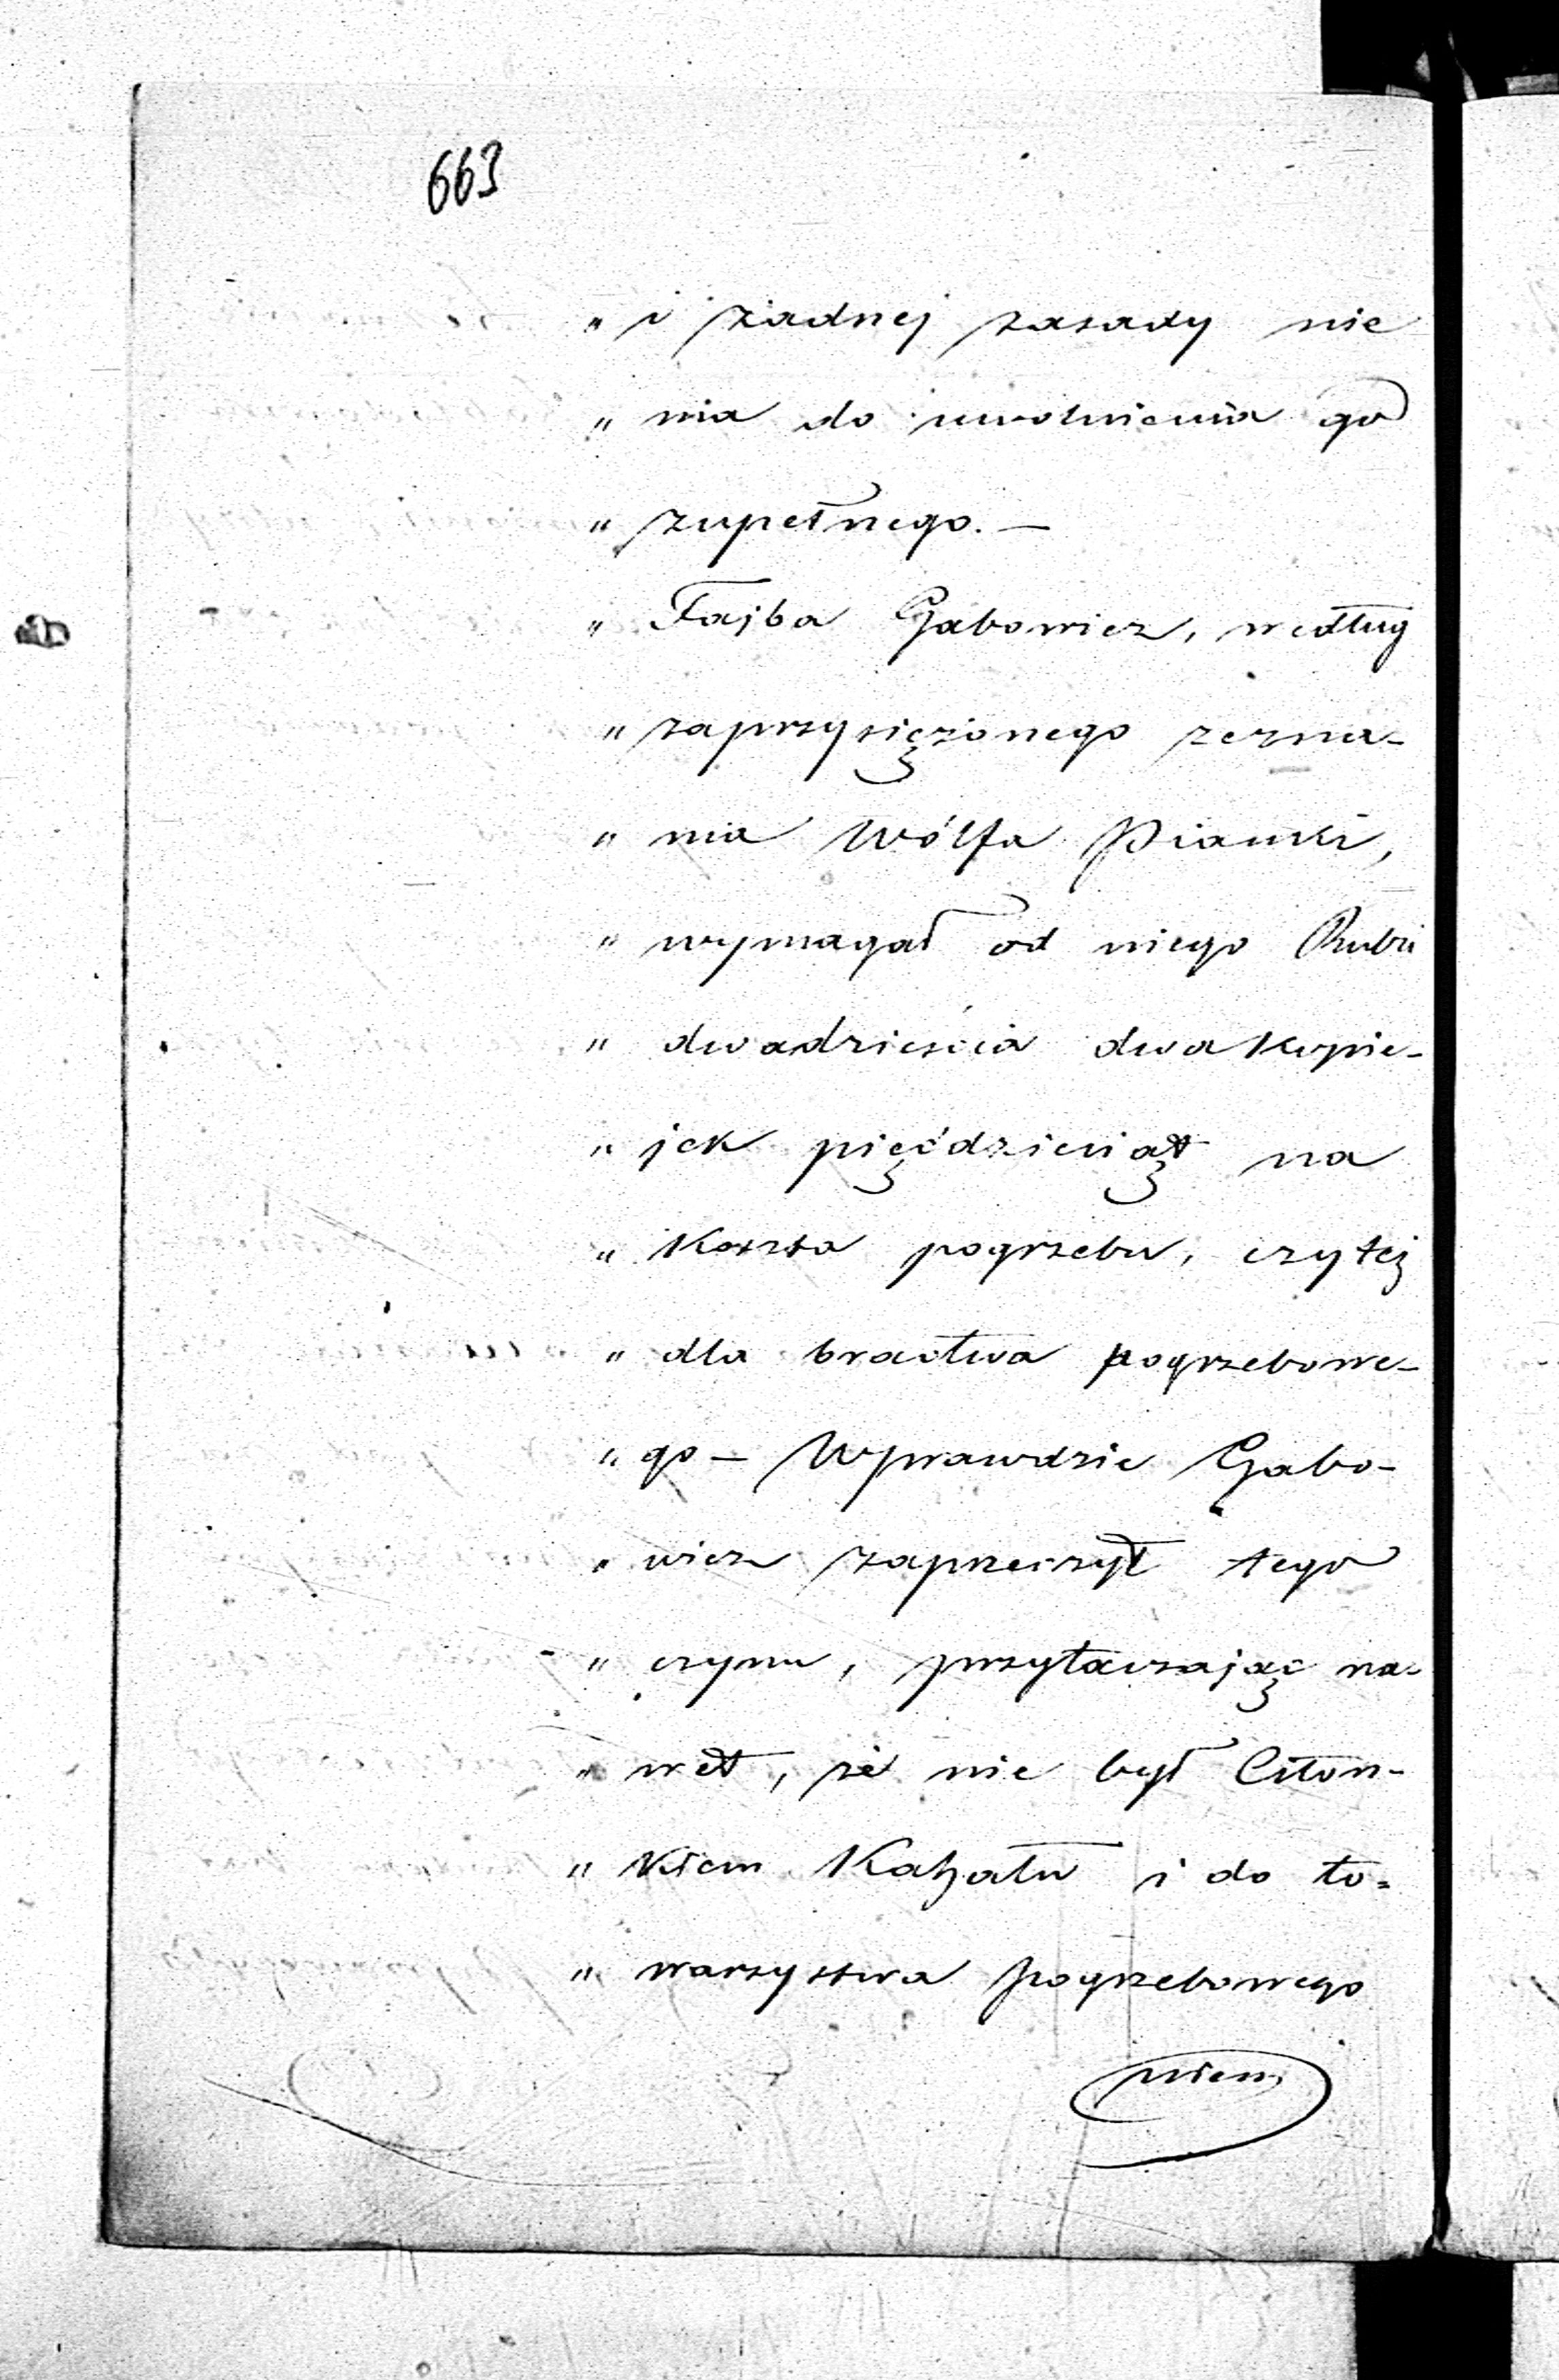 663
" i żadnej zasady nie
" ma do uwolnienia go
" zupełnego. —
" Fajba Gabowicz, według
" zaprzysiężonego zezna-
" nia Wólfa Pianki,
" wymagał od niego Rubli
" dwadzieścia dwa kopie-
" jek pięćdziesiąt na
" koszta pogrzebu, czyteż
" dla bractwa pogrzebowe-
" go — Wprawdzie Gabo-
" wicz zaprzeczył tego
" czynu, przytaczając na-
" wet, że nie był Człon-
" kiem Kahału i do to-
" warzystwa pogrzebowego